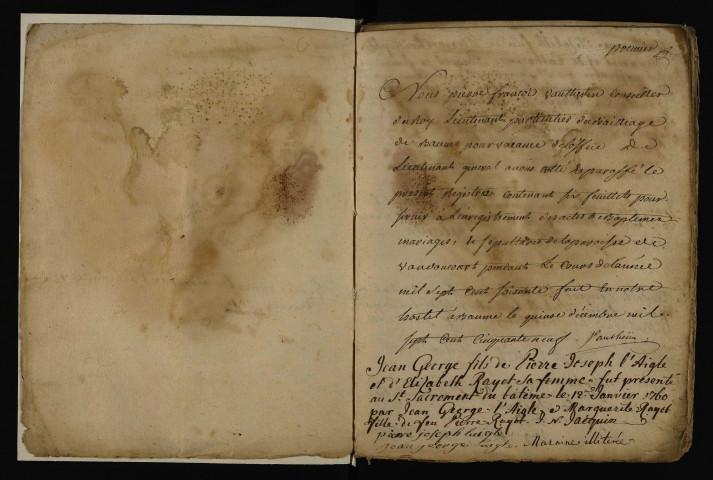 premier
Nous pierre françois vautherin Conseiller
du Roy Lieutenant particulier du bailliage
de Baume pour vacance de l'office de
Lieutenant general avons cotté & paraffé le
present Registre contenant six feuillets pour
servir à L'enregistrement des actes de Baptemes
mariages, & sepultures de la paroisse de
vandoncourt pendant Le Cours de l'année
mil sept Cent soixante fait en notre
hostel à Baume le quinze décembre mil
sept Cent Cinquante neuf Vautherin
Jean George fils de Pierre Joseph l'Aigle
et d'Elizabeth Rayot sa femme fut présenté
au St. Sacrement du bâteme le 12e Janvier 1760
par Jean George l'Aigle et Marguerite Rayot
fille de feu Pierre Rayot J. N. Jacquin
pierre joseph laigle
jean george laigle Maraine illiterée